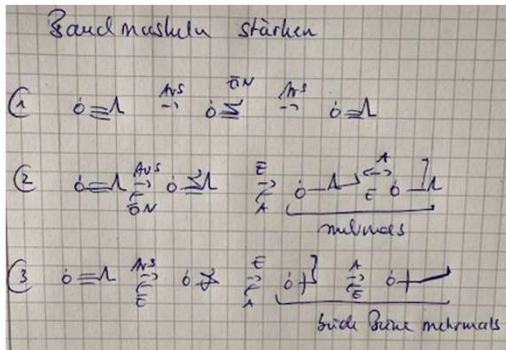 Bauchmuskeln stärken
ŌN
① AUS AUS
② AUS E A
ŌN A E
mehrmals
③ AUS E A
E A E
beide Beine mehrmals